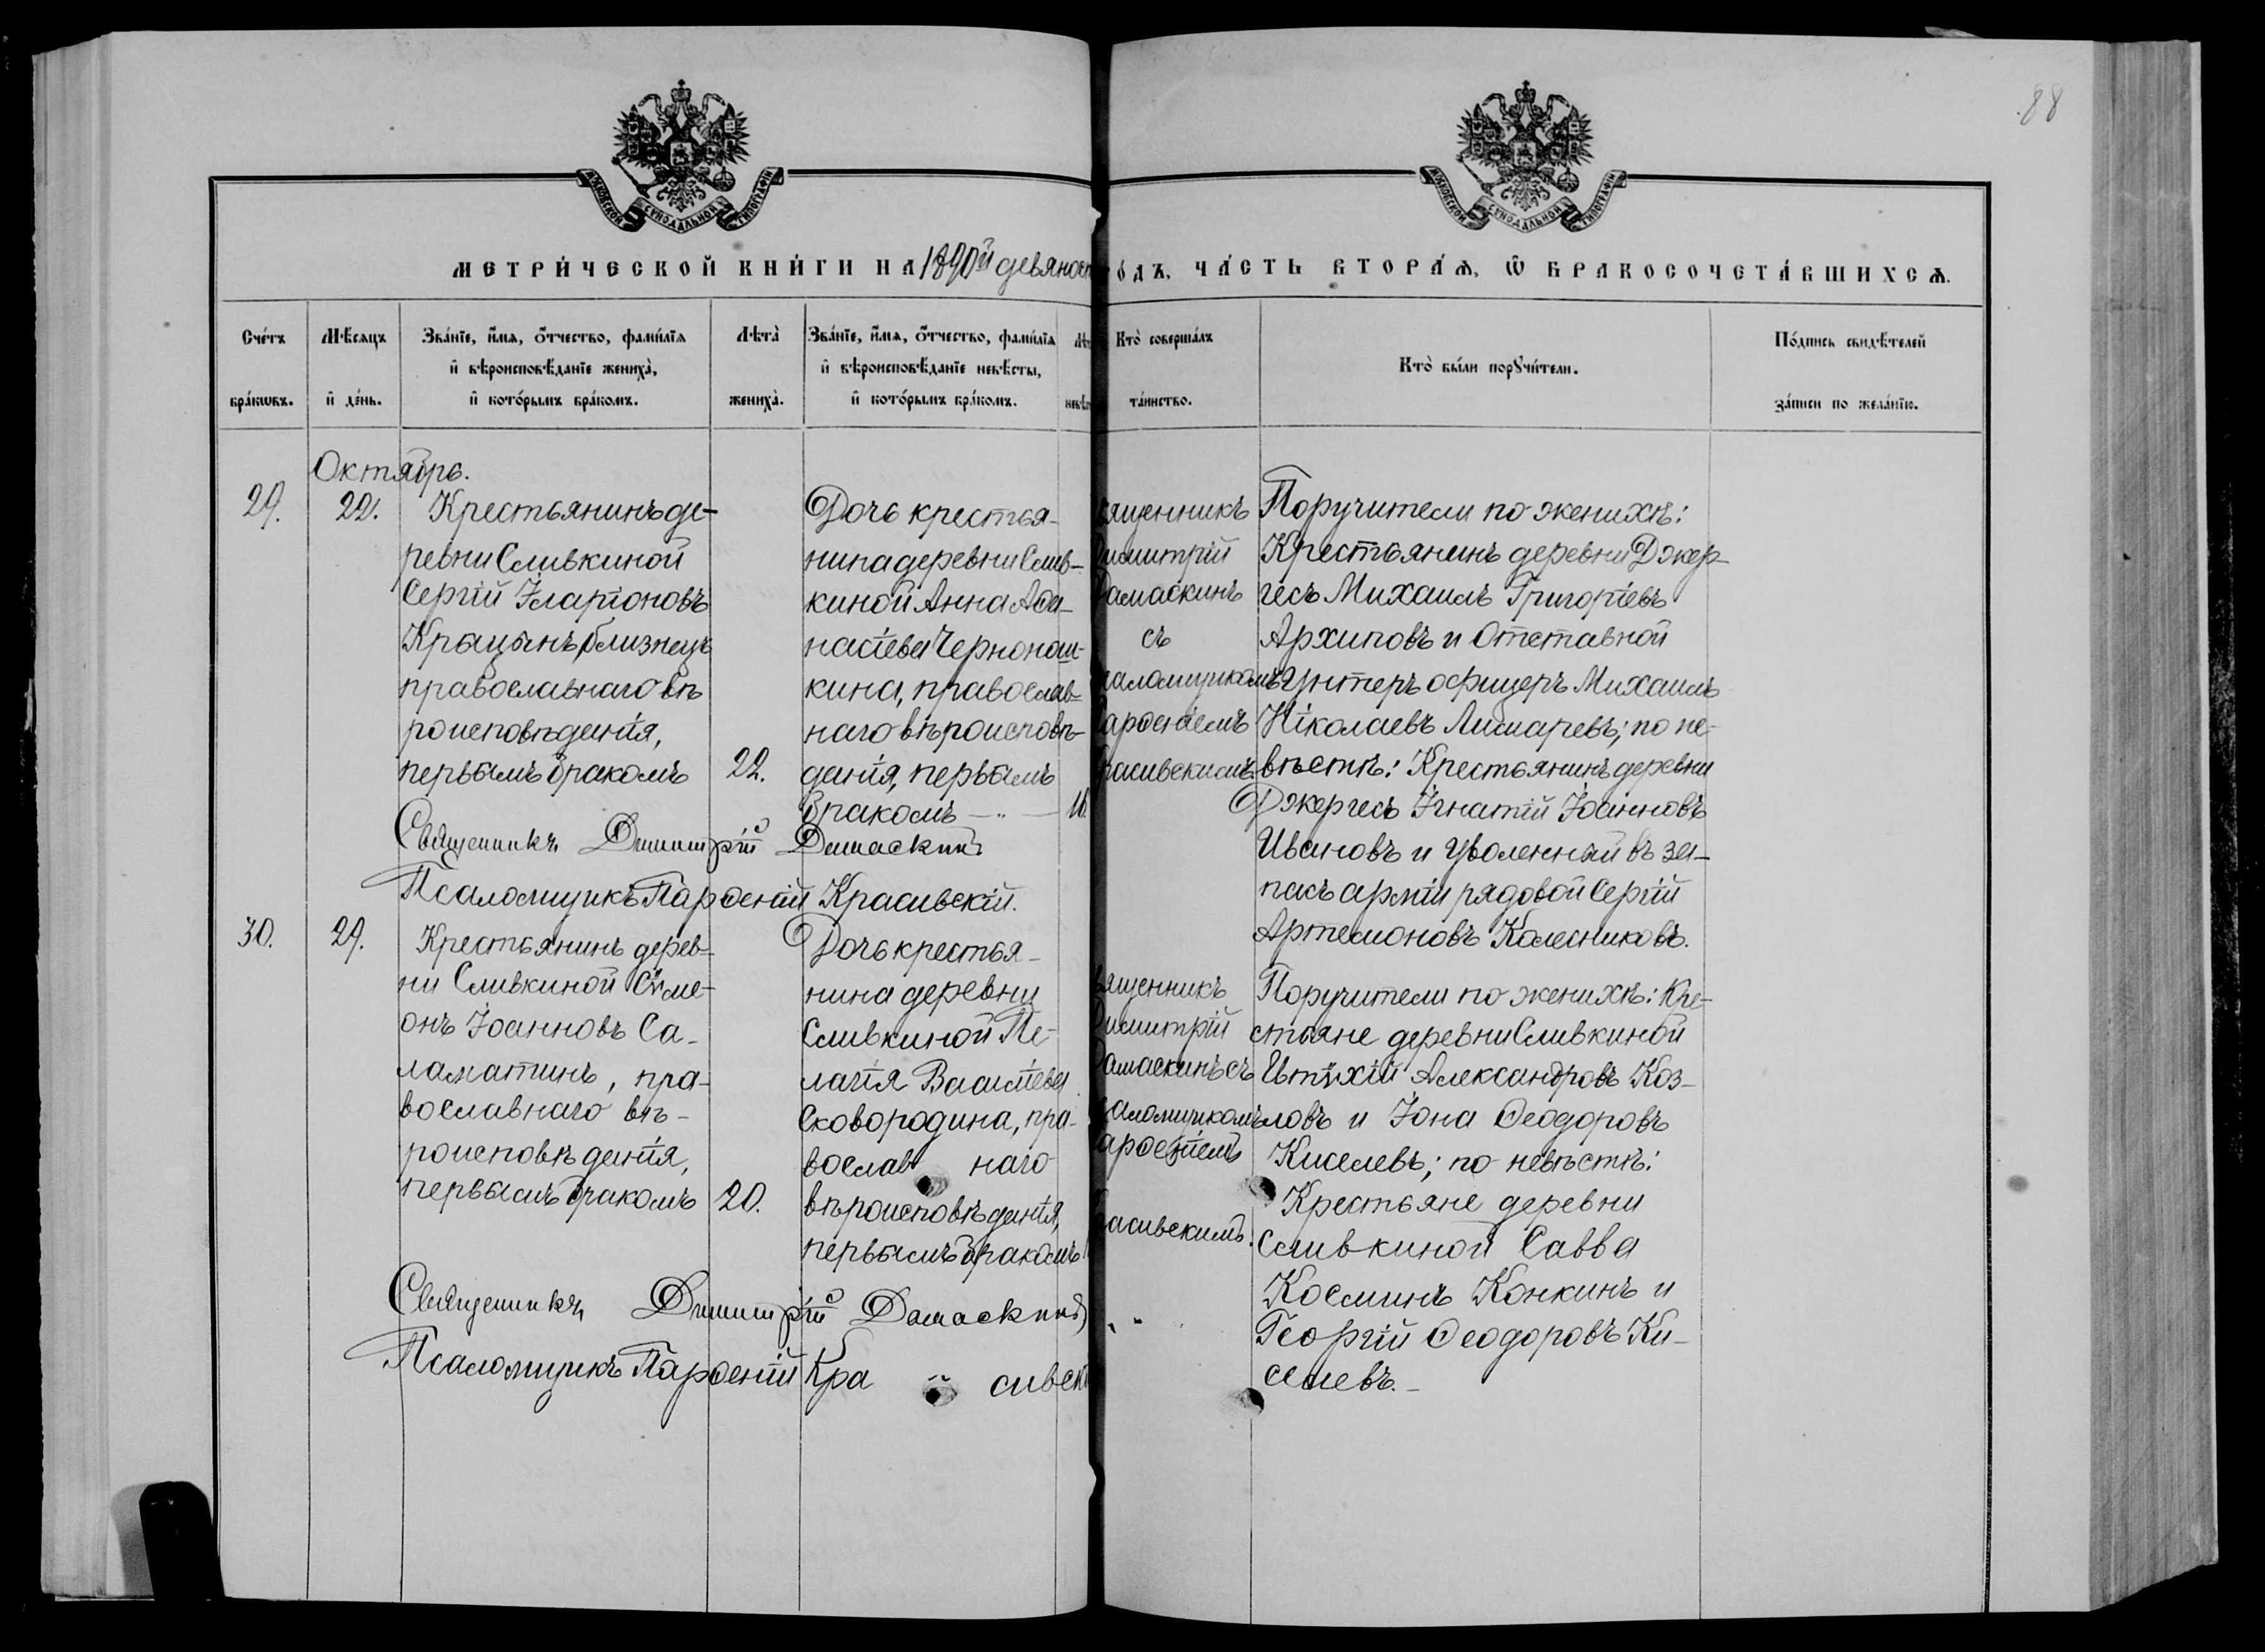 88
МОСКОВСКОЙ СѴНОДАЛЬНОЙ ТИПОГРАФІИ
МОСКОВСКОЙ СѴНОДАЛЬНОЙ ТИПОГРАФІИ
МЕТРИ́ЧЕСКОЙ КНИ́ГИ НА 1890й девяност
о́дъ, ЧА́СТЬ ВТОРА́Ѧ, Ѡ БРАКОСОЧЕТА́ВШИХСѦ.
Сче́тъ
бра́кѡвъ.
Мѣ́сяцъ
и҆ де́нь.
Зва́нїе, и҆́мѧ, ѻ҆́тчество, фами́лїѧ
и҆ вѣроисповѣ́данїе жениха̀,
и҆ кото́рымъ бра́комъ.
Лѣ́та̀
жениха̀.
Зва́нїе, и҆́мѧ, ѻ҆́тчество, фами́лїѧ
и҆ вѣроисповѣ́данїе невѣ́сты,
и҆ кото́рымъ бра́комъ.
Кто̀ соверша́лъ
та́инство.
Кто̀ бы́ли порꙋчи́тели.
По́дпись свидѣ́телей
за́писи по жела́нїю.
Октябрь.
29.
22.
Крестьянинъ де-
ревни Сливкиной
Сергій Иларіоновъ
близнецъ
православнаго вѣ
роисповѣданія,
первымъ бракомъ
22.
Дочь крестья-
нина деревни Слив-
киной Анна Аѳа-
насіева
кина, православ-
наго вѣроисповѣ-
данія, первымъ
бракомъ
вященникъ
Димитрій
Дамаскинъ
съ
саломщикомъ
арѳеніемъ
расивскимъ
Поручители по женихѣ:
Крестьянинъ деревни Джер-
гесъ Михаилъ Григоріевъ
Архиповъ и Отставной
Унтеръ офицеръ Михаилъ
Ніколаевъ Лимаревъ; по не-
вѣстѣ: Крестьянинъ деревни
Джергесъ Игнатій Іоанновъ
Ивановъ и Уволенный въ за-
пасъ арміи рядовой Сергій
Артемоновъ Колесниковъ.
Священникъ Димитрій Дамаскинъ
Псаломщикъ Парѳеній Красивскій.
30.
29.
Крестьянинъ дерев-
ни Сливкиной Сѵме-
онъ Іоанновъ Са-
ламатинъ, пра-
вославнаго вѣ-
роисповѣданія,
первымъ бракомъ
20.
Дочь крестья-
нина деревни
Сливкиной Пе-
лагія Василіева
Сковородина, пра-
вослав наго
вѣроисповѣданія,
первымъ бракомъ
вященникъ
Димитрій
Дамаскинъ съ
саломщикомъ
арѳеніемъ
расивскимъ.
Поручители по женихѣ: Кре-
стьяне деревни Сливкиной
Евтѵхій Александровъ Коз-
ловъ и Іона Ѳеодоровъ
Киселевъ; по невѣстѣ:
Крестьяне деревни
Сливкиной Савва
Косминъ Конкинъ и
Георгій Ѳеодоровъ Ки-
селевъ.
Священникъ Димитрій Дамаскинъ
Псаломщикъ Парѳеній Кра сивск